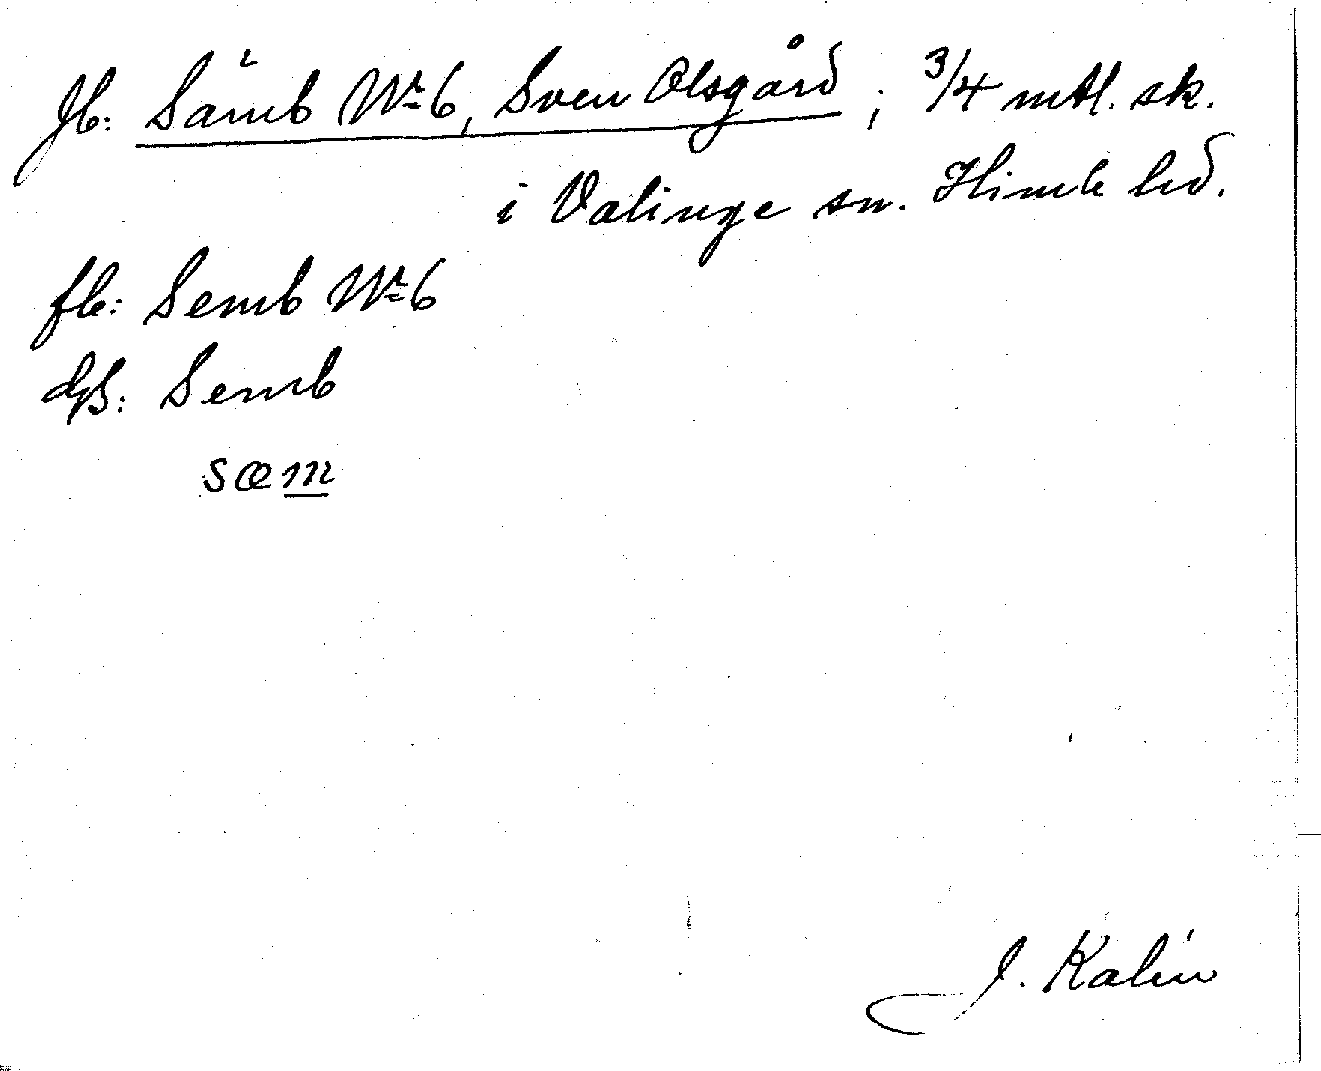 Jb: Sämb Nº 6, Sven Olsgård ; 3/4 mtl. sk.
i Valinge sn. Himle hd.
fb: Semb Nº 6
dpb: Semb
sæm
J. Kalén